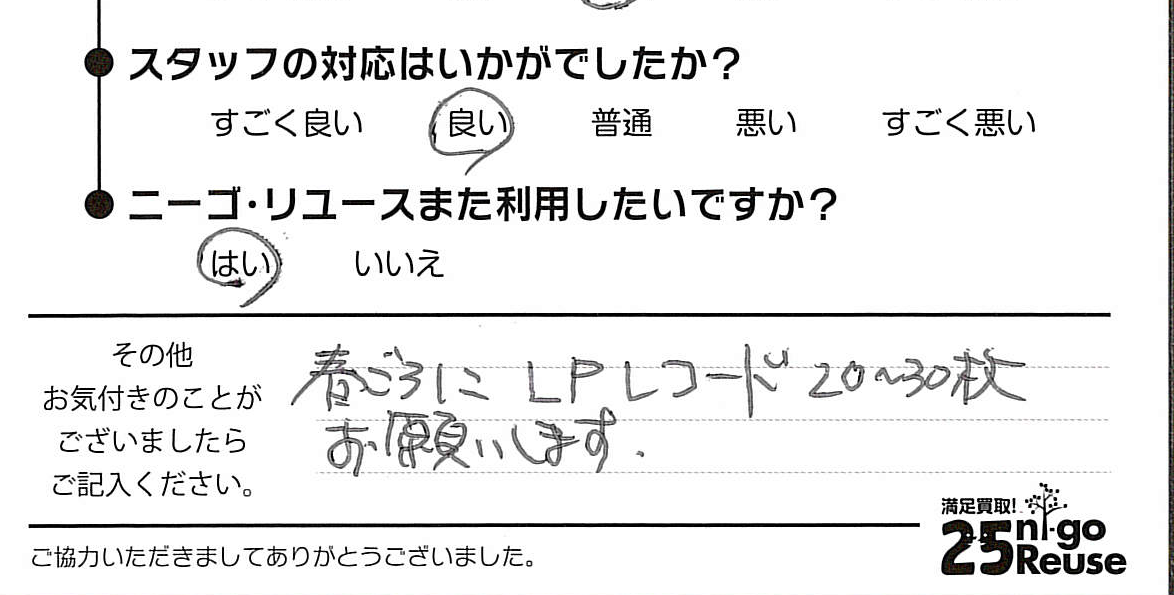 スタッフの対応はいかがでしたか？
すごく良い 良い 普通 悪い すごく悪い
ニーゴ・リユースまた利用したいですか？
はい いいえ
その他
お気付きのことが
ございましたら
ご記入ください。
春ごろに LPレコード 20〜30枚
お願いします.
満足買取!
25 ni-go
Reuse
ご協力いただきましてありがとうございました。